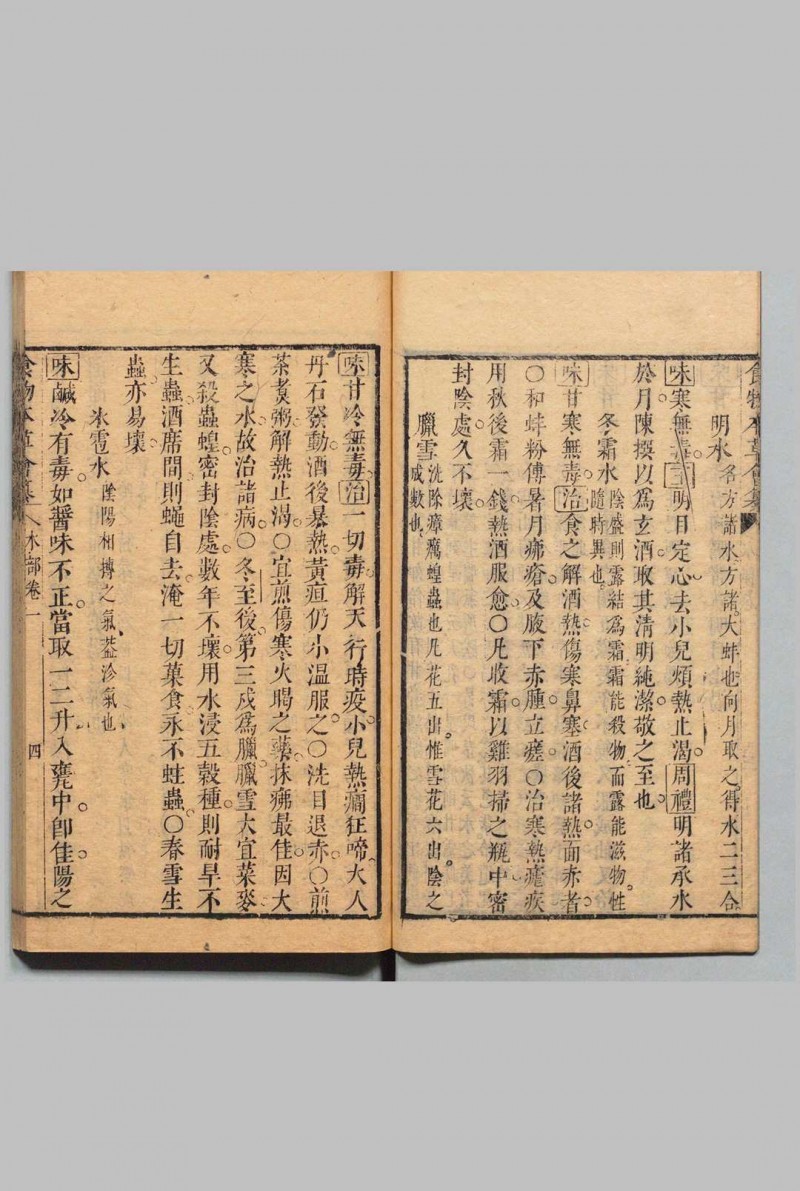 食物本草會纂
明水各方諸水方諸大蚌也向月取之得水二三合
味寒無毒主明目定心去小兒煩熱止渴周禮明諸承水
於月陳撰以爲玄酒取其清明純潔敬之至也
冬霜水陰盛則露結爲霜霜能殺物而露能滋物性
隨時異也
味甘寒無毒治食之解酒熱傷寒鼻塞酒後諸熱面赤者
〇和蚌粉傅暑月疿瘡及腋下赤腫立瘥〇治寒熱瘧疾
用秋後霜一錢熱酒服愈〇凡收霜以雞羽掃之瓶中密
封陰處久不壞
臘雪洗除瘴癘蝗蟲也凡花五出惟雪花六出陰之
成數也
味甘冷無毒治一切毒解天行時疫小兒熱癎狂啼大人
丹石發動酒後暴熱黃疸仍小溫服之〇洗目退赤〇煎
茶煑粥解熱止渴〇宜煎傷寒火暍之藥抹疿最佳因大
寒之水故治諸病〇冬至後第三戍爲臘臘雪大宜菜麥
又殺蟲蝗密封陰處數年不壞用水浸五穀種則耐旱不
生蟲酒席間則蠅自去淹一切菓食永不蛀蟲〇春雪生
蟲亦易壞
氷雹水陰陽相摶之氣葢沴氣也
味鹹冷有毒如醬味不正當取一二升入甕中卽佳陽之
食物本草會纂 水部卷一 四